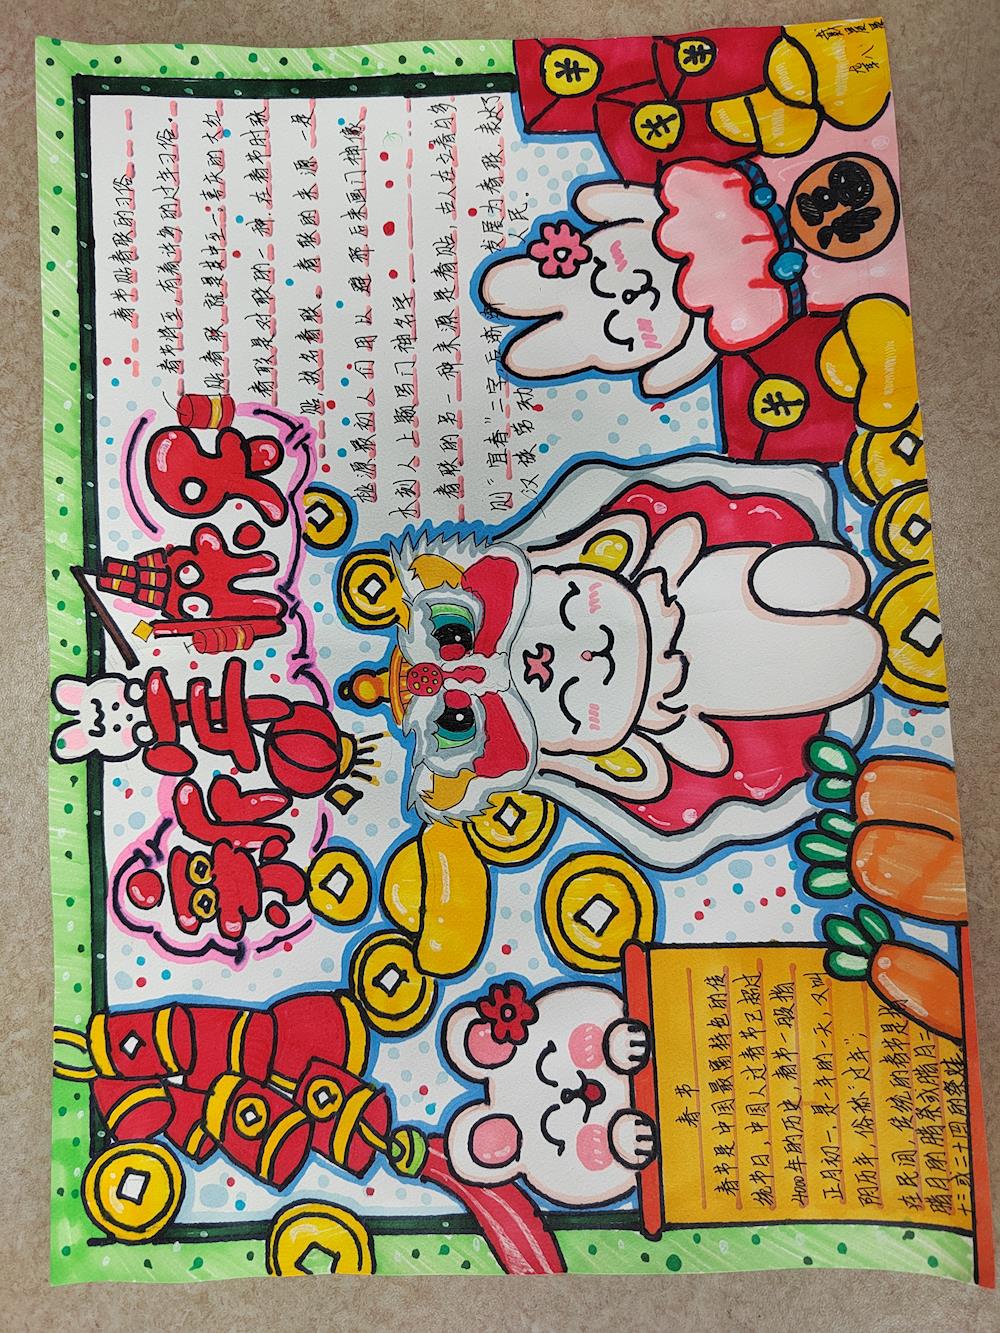 春节贴春联的习俗
春节将至,有着许多的过年习俗.
贴春联就是其中之一,喜庆的大红
春联是对联的一种.在春节时张
贴,故名春联.春联的来源一是
桃源最初人们用以避邪后来画门神像
木刻人上题写门神名字
春联的另一种来源是春贴,古人在立春日多
"宜春"二字,后渐 发展为春联,表达了
汉族劳动人民.
福
春节
春节是中国最富特色的传
统节日,中国人过春节已超过
4000年的历史,春节一般指
正月初一,是一年的一天,又叫
阴历年,俗称"过年";
在民间,传统的春节是指
腊月的腊祭或腊月二
十三或二十四的祭灶